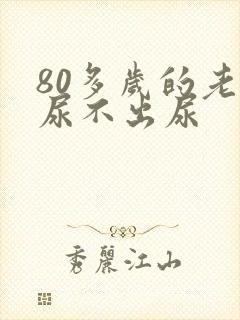 80多歲的老
尿不出尿
秀麗江山